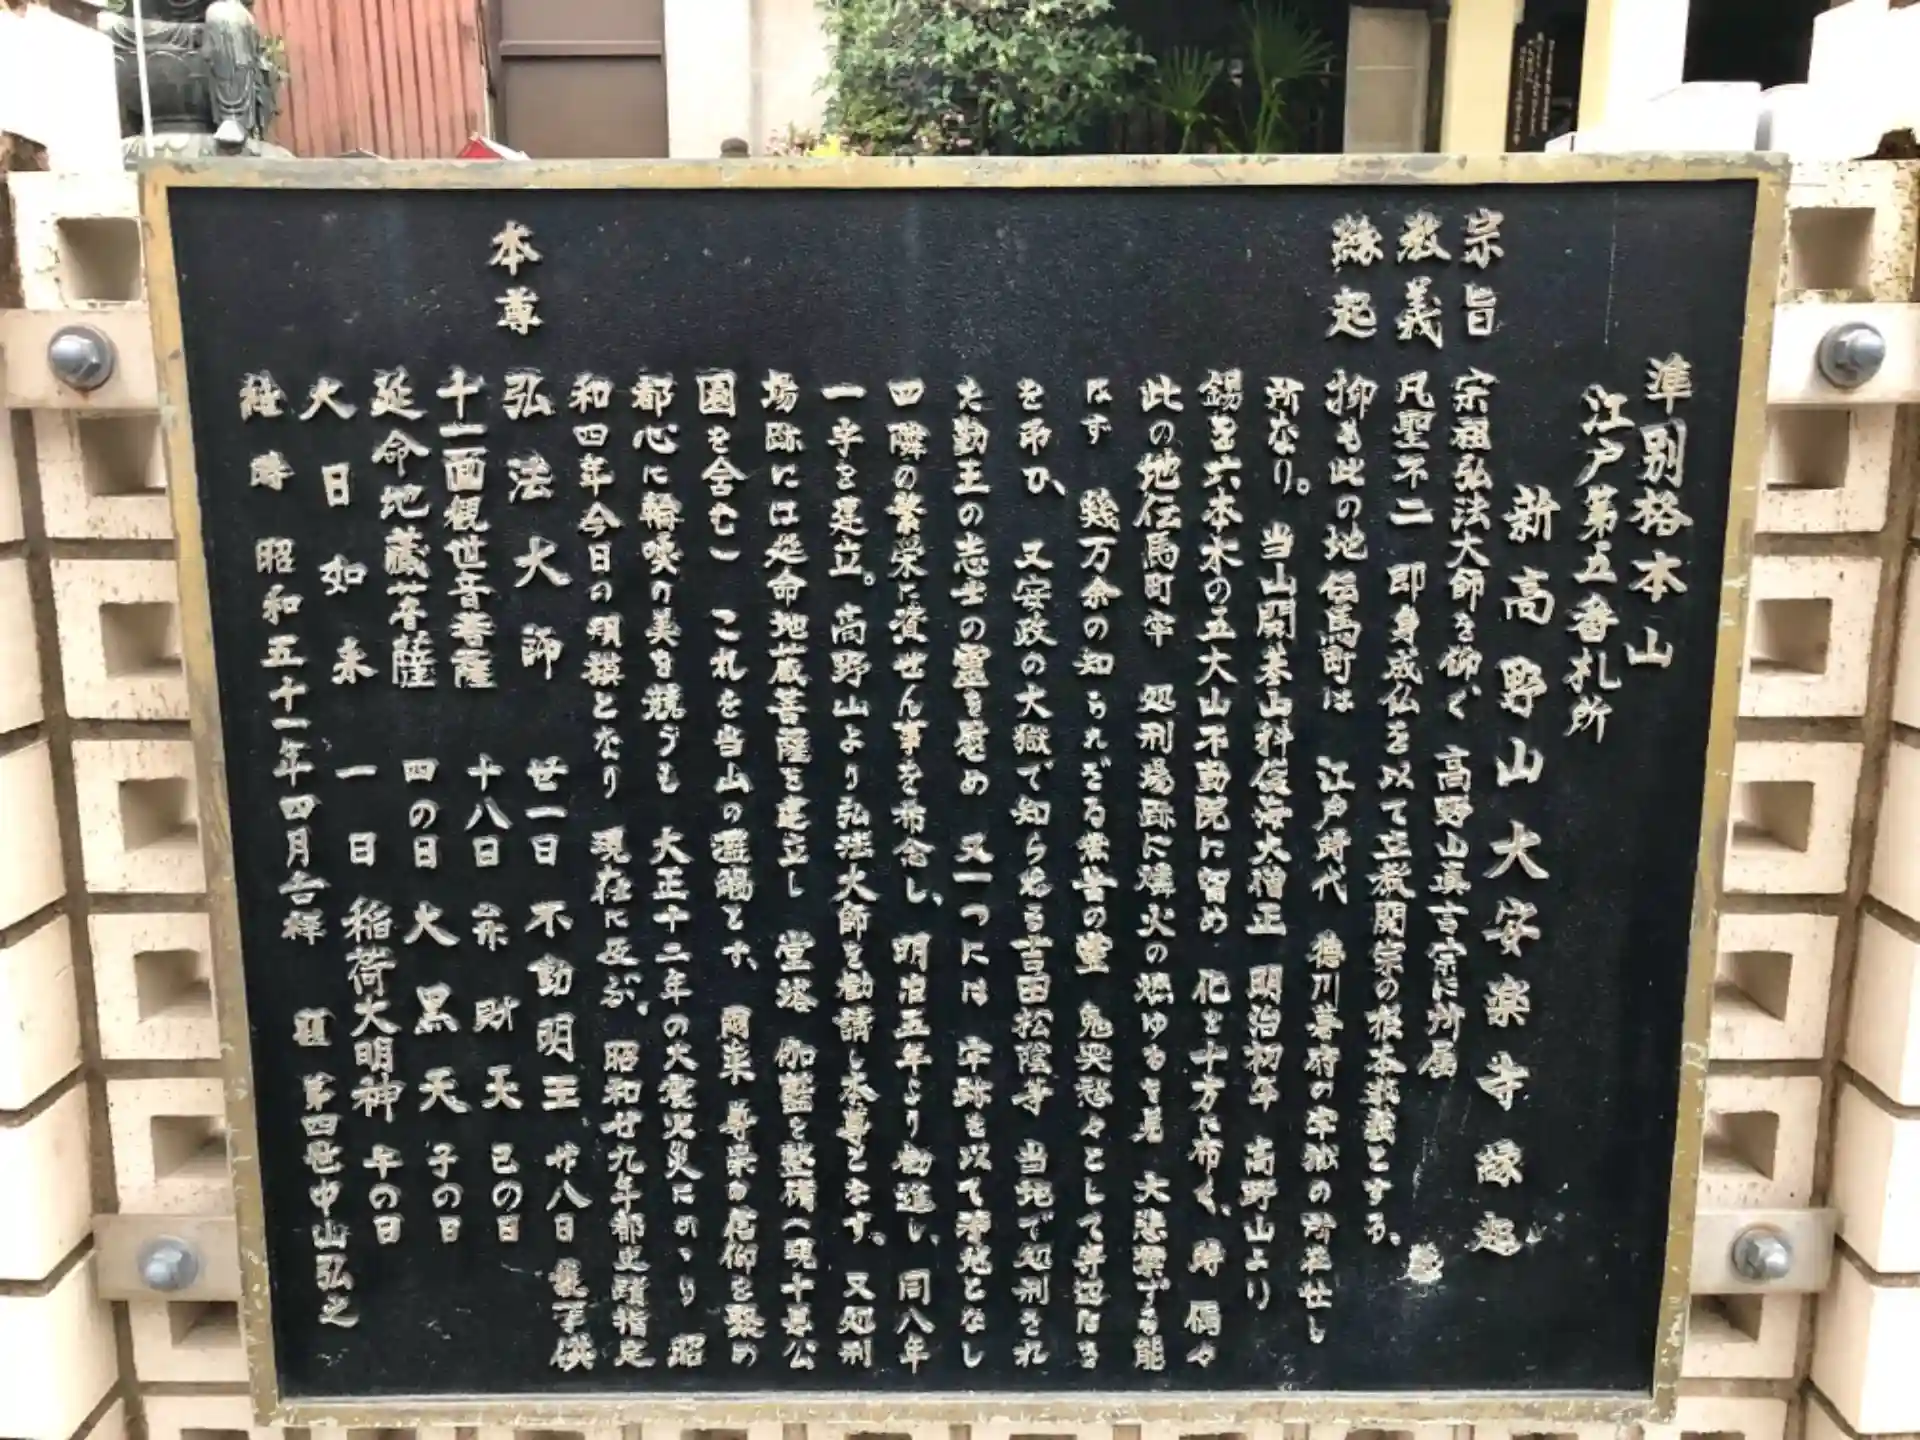 準別格本山
江戸第五番札所
新高野山大安楽寺縁起
宗旨 宗祖弘法大師を仰ぐ 高野山真言宗に所属
教義 凡聖不二 即身成仏を以て立教開宗の根本教義とする。
縁起 抑も此の地伝馬町は 江戸時代 徳川幕府の牢獄の所在せし
所なり。当山開基山科俊海大僧正 明治初年 高野山より
錫を六本木の五大山不動院に留め 化を十方に布く、時 偶々
此の地伝馬町牢 処刑場跡に燐火の燃ゆるを見 大悲禁ずる能
はず 幾万余の知られざる業苦の霊 鬼哭愁々として寄辺なき
を弔ひ、又安政の大獄で知られる吉田松陰等 当地で処刑され
た勤王の志士の霊を慰め 又一つには 牢跡を以て浄地となし
四隣の繁栄に資せん事を布念し、明治五年より勧進し、同八年
一宇を建立。高野山より弘法大師を勧請し本尊となす。又処刑
場跡には延命地蔵菩薩を建立し 堂塔 伽藍を整備(現十思公
園を含む) これを当山の濫觴とす、爾来 尊崇の信仰を聚め
都心に輪喚の美を競うも 大正十二年の大震火災にあゝり 昭
和四年今日の規模となり 現在に及ぶ、昭和廿九年都史蹟指定
本尊 弘法大師 廿一日 不動明王 廿八日 護摩供
十一面観世音菩薩 十八日 弁財天 己の日
延命地蔵菩薩 四の日 大黒天 子の日
大日如来 一日 稲荷大明神 午の日
維時 昭和五十一年四月吉祥 第四世中山弘之